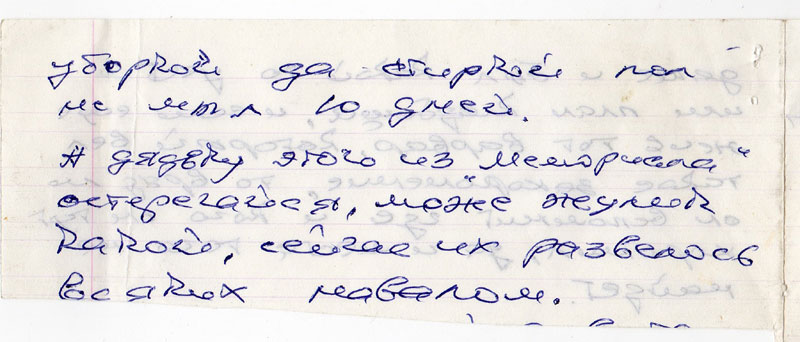 уборкой да стиркой пол
не мыл 10 дней.
А дядьку этого из "Мемориала"
остерегайся, може жулик
какой, сейчас их развелось
всяких навалом.